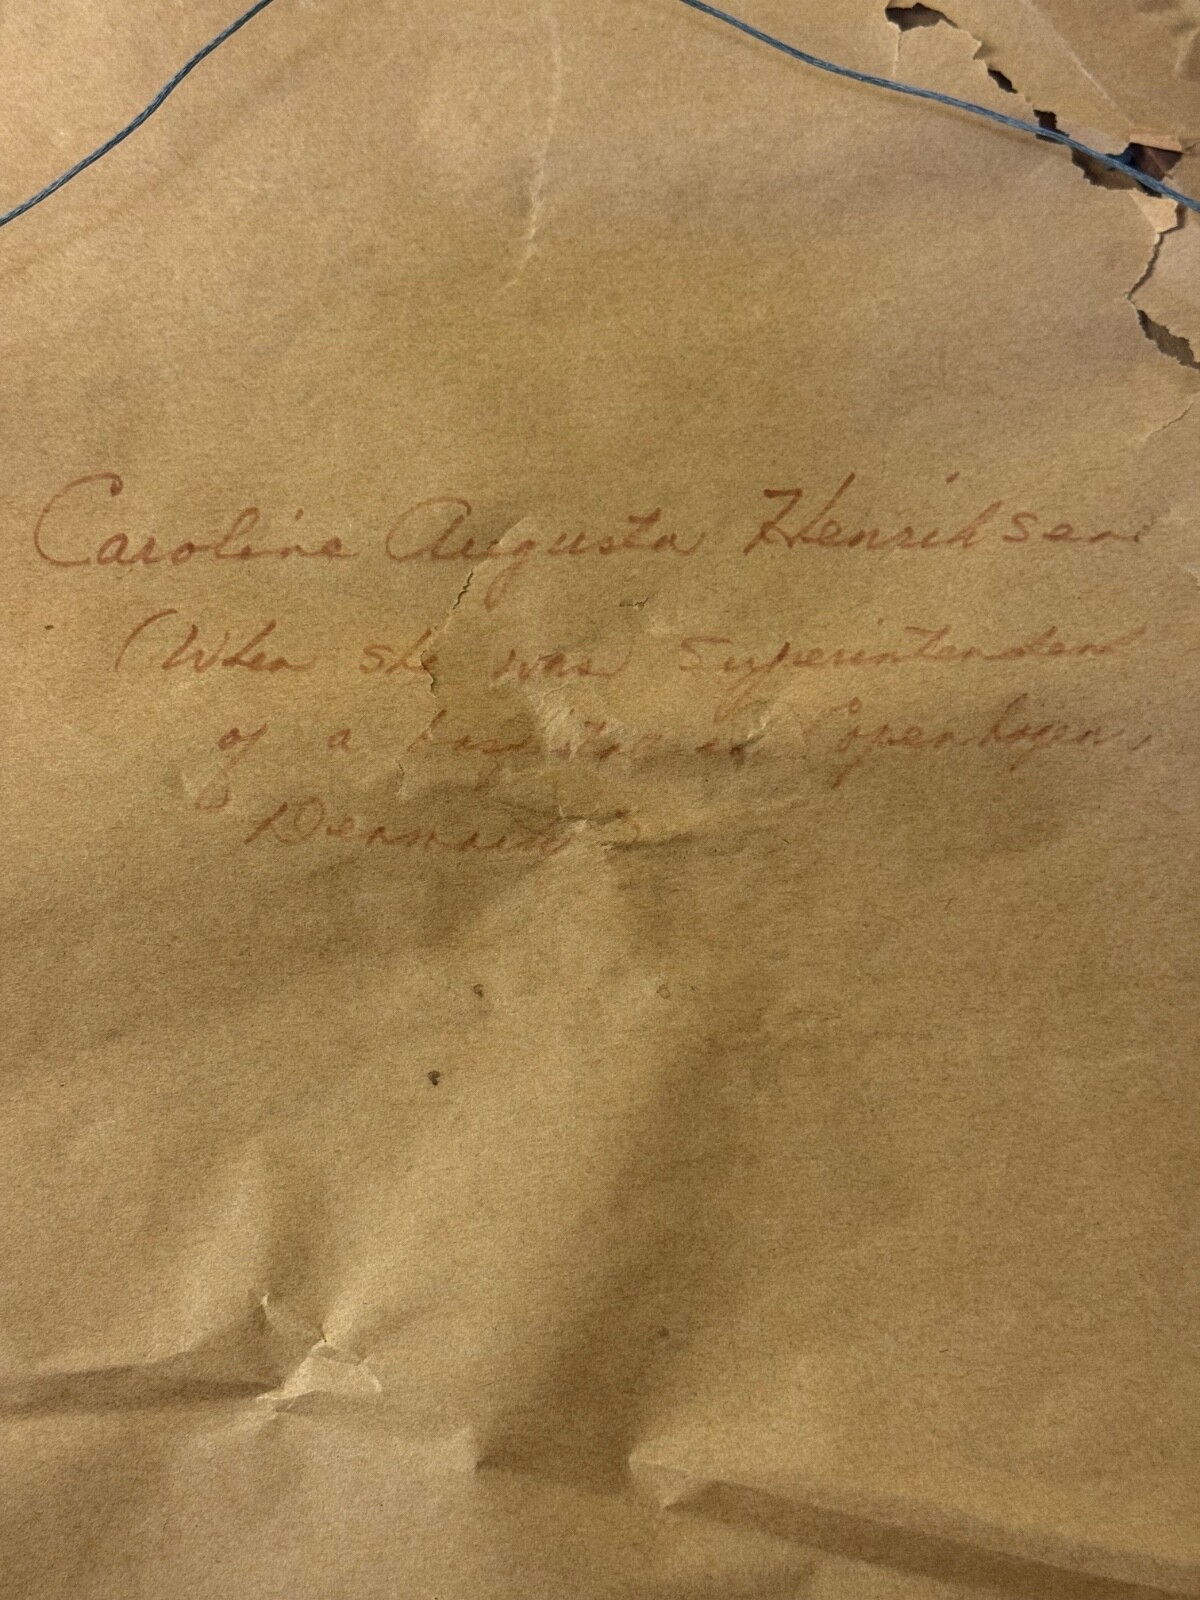 Caroline Augusta Henriksen
(When she was Superintendent
of a hospital in Copenhagen,
Denmark)